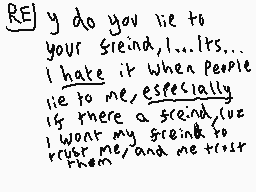 RE y do you lie to
your freind, I... Its...
I hate it when people
lie to me, especially
if there a freind, cuz
I wont my freind to
trust me, and me trost
them